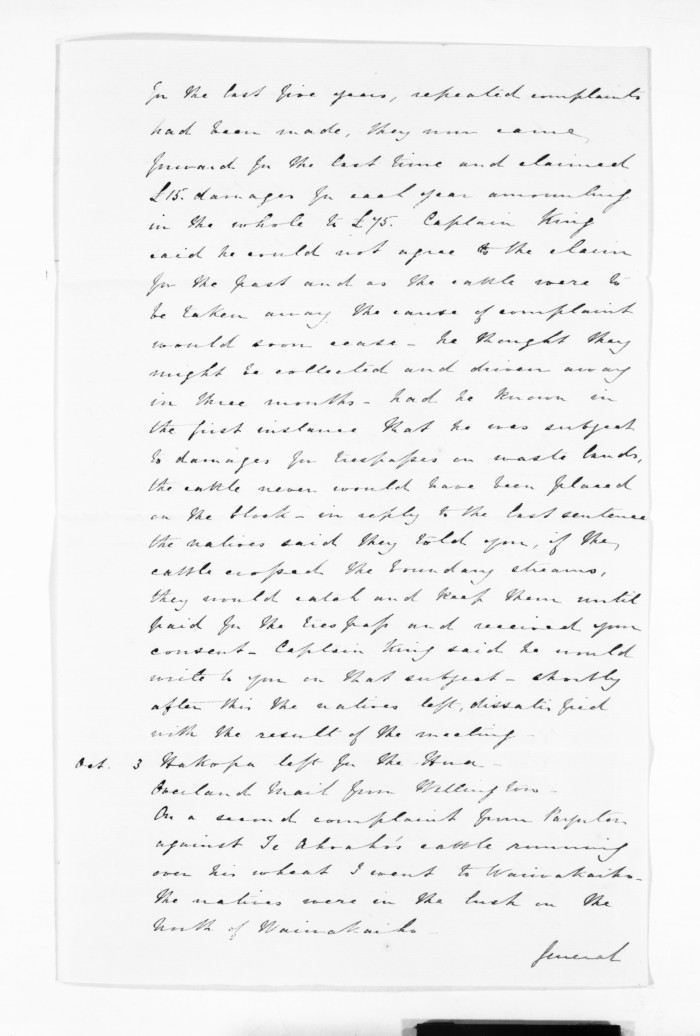 for the last five years, repeated complaints
had been made, they now came
forward for the last time and claimed
£15. damages for each year amounting
in the whole to £75. Captain King
said he could not agree to the claim
for the past and as the cattle were to
be taken away the cause of complaint
would soon cease - he thought they
might be collected and driven away
in three months - had he known in
the first instance that he was subject
to damages for trespasses on waste lands,
the cattle never would have been placed
on the block - in reply to the last sentence
the natives said they told you, if the
cattle crossed the boundary streams,
they would catch and keep them until
paid for the trespass and received your
consent - Captain King said he would
write to you on that subject - shortly
after this the natives left, dissatisfied
with the result of the meeting -
Oct. 3 Hakopa left for the Hua -
Overland Mail from Wellington -
On a second complaint from Paynter
against Te Ahoaho's cattle running
over his wheat I went to Waiwakaiho -
the natives were in the bush on the
north of Waiwakaiho -
General